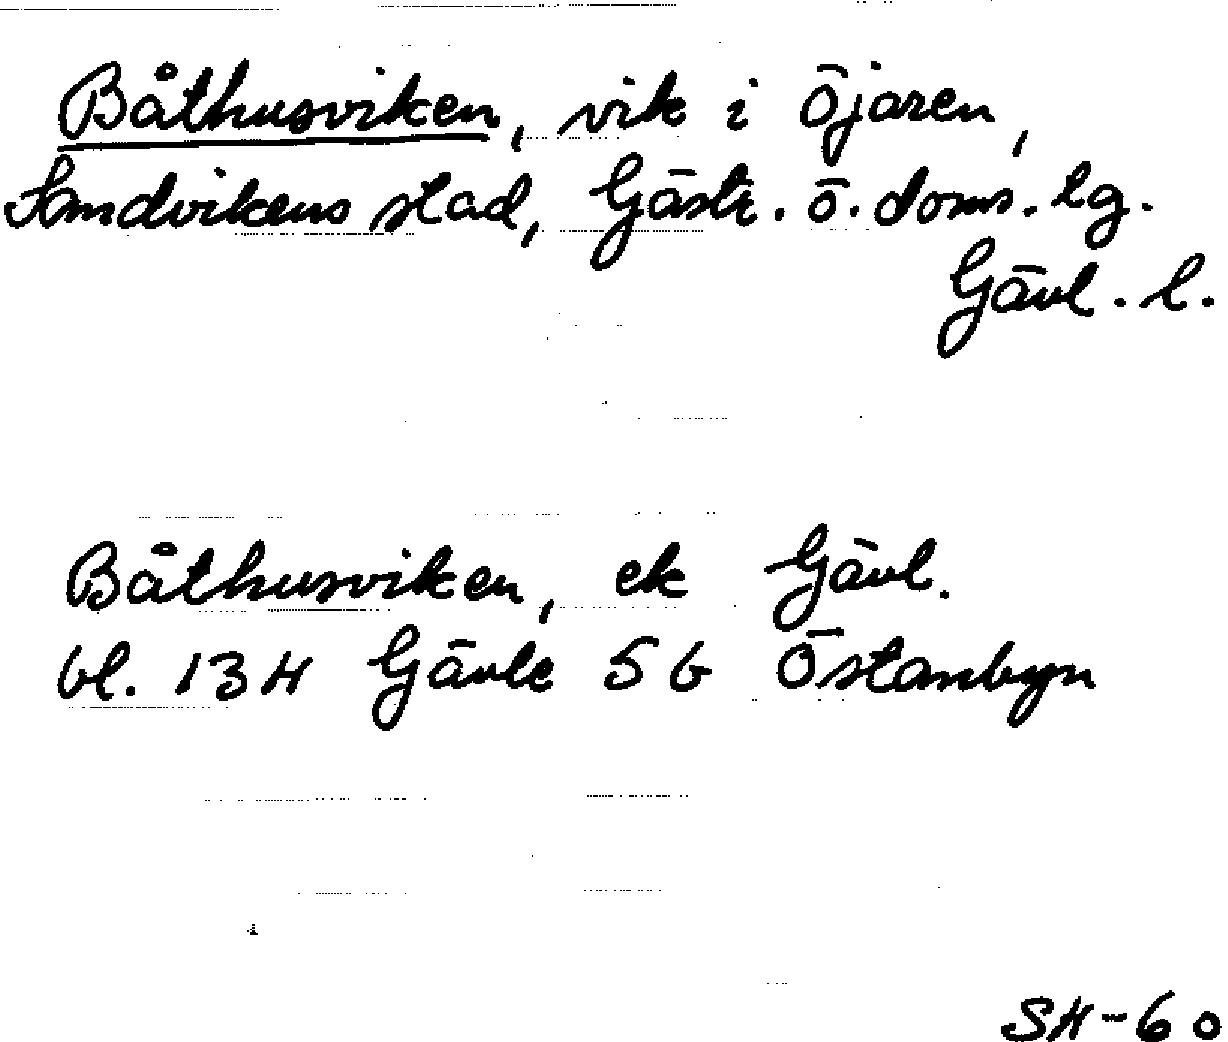 Båthusviken, vik i Öjaren,
Sandvikens stad, Gästr. ö. doms. lg.
Gävl. l.
Båthusviken, ek Gävl.
bl. 13H Gävle 5G Östanbyn
SH-60